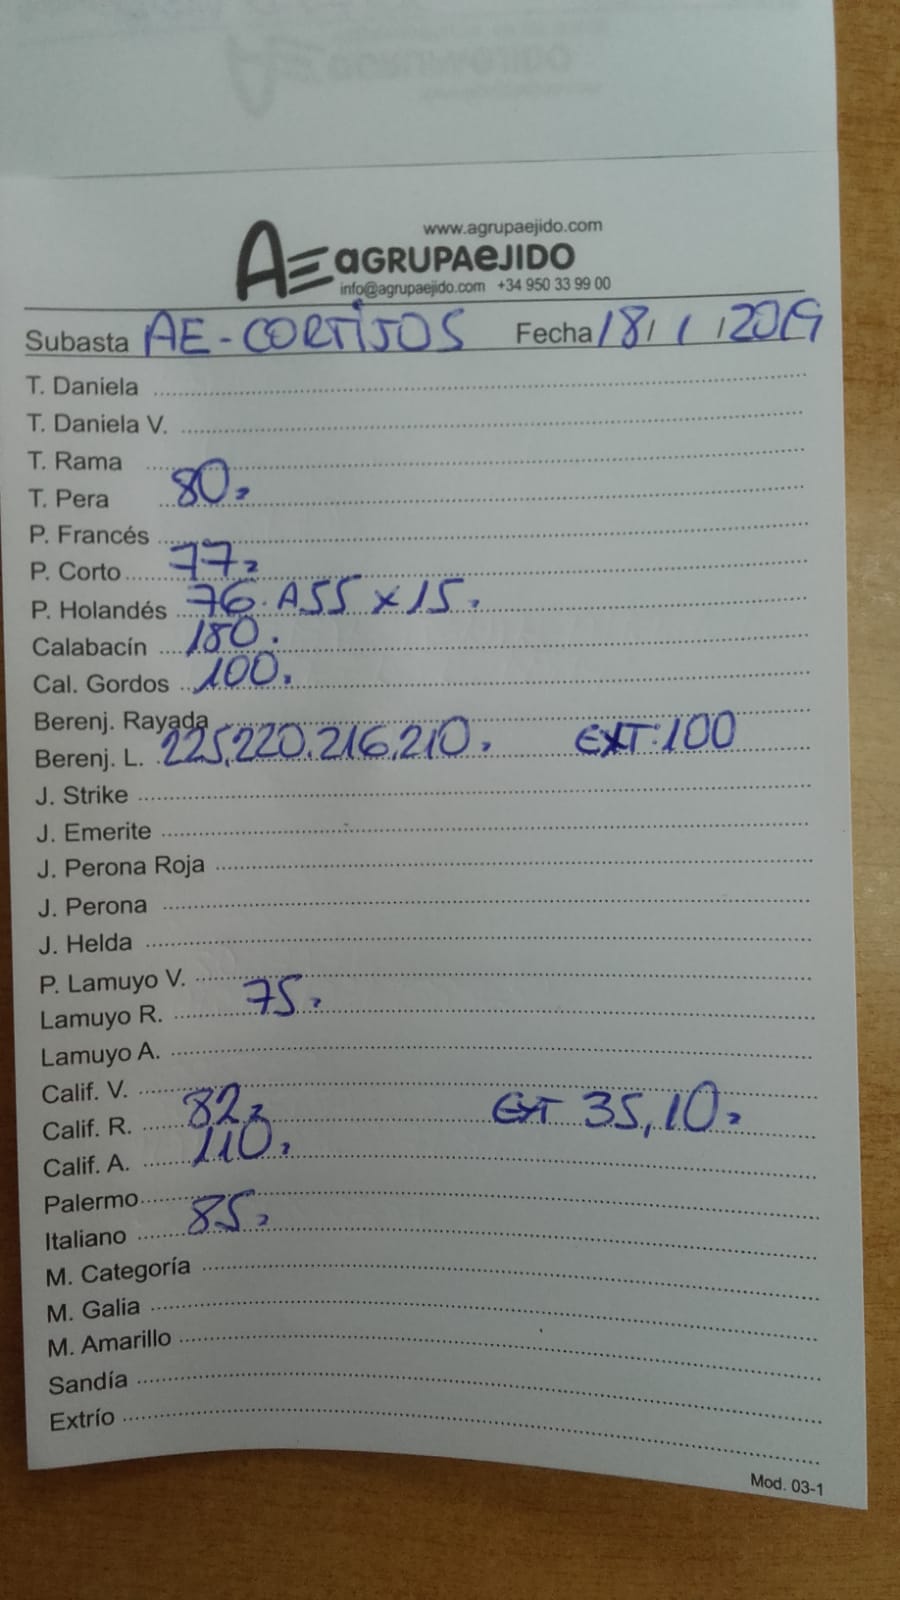 www.agrupaejido.com
AE AGRUPAEJIDO
info@agrupaejido.com +34 950 33 99 00
Subasta AE-CORTIJOS Fecha 18/1/2019
T. Daniela
T. Daniela V.
T. Rama
T. Pera 80,
P. Francés
P. Corto 77,
P. Holandés 76. A55 x 15.
Calabacín 180.
Cal. Gordos 100.
Berenj. Rayada
Berenj. L. 225,220.216,210, EXT:100
J. Strike
J. Emerite
J. Perona Roja
J. Perona
J. Helda
P. Lamuyo V.
Lamuyo R. 75,
Lamuyo A.
Calif. V.
Calif. R. 82, EXT 35,10,
Calif. A. 110,
Palermo
Italiano 85,
M. Categoría
M. Galia
M. Amarillo
Sandía
Extrío
Mod. 03-1